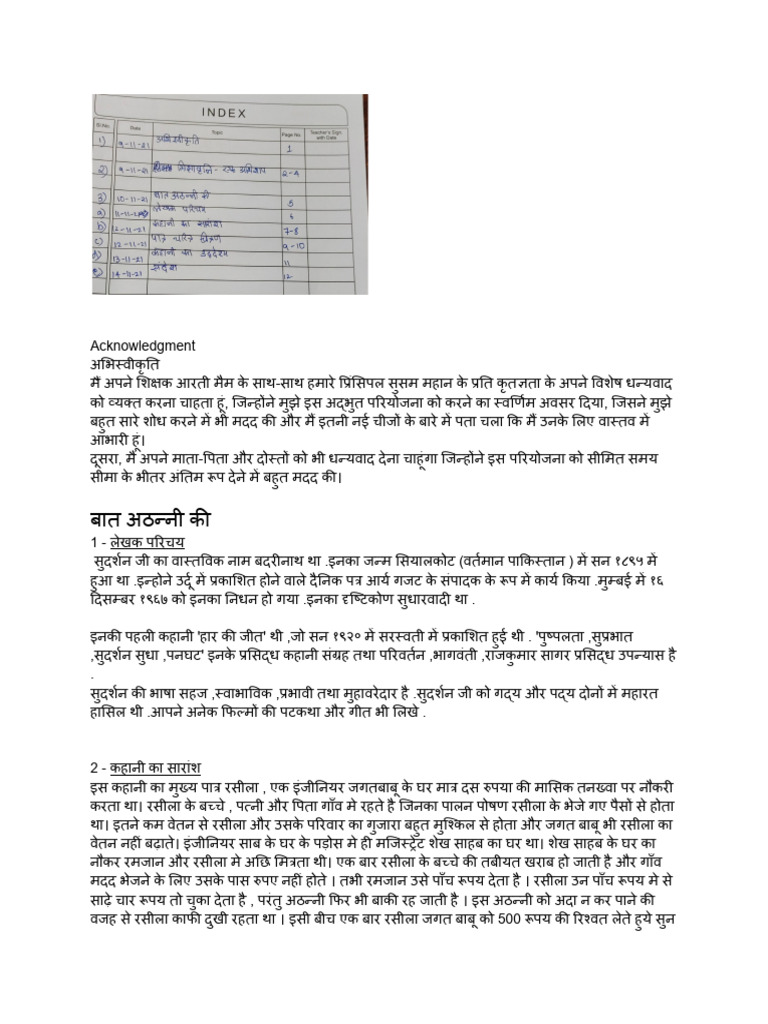 INDEX
Sl.No. Date Topic Page No. Teacher's Sign with Date
1) 9-11-21 अभिस्वीकृति 1
2) 9-11-21 एक अभिशाप 2-4
3) 10-11-21 बात अठन्नी की 5
a) लेखक परिचय 6
b) 12-11-21 कहानी का सारांश 7-8
c) 12-11-21 पात्र चरित्र 9-10
13-11-21 कहानी का उद्देश्य 11
e) 14-11-21 संदेश 12
Acknowledgment
अभिस्वीकृति
मैं अपने शिक्षक आरती मैम के साथ-साथ हमारे प्रिंसिपल सुसम महान के प्रति कृतज्ञता के अपने विशेष धन्यवाद
को व्यक्त करना चाहता हूं, जिन्होंने मुझे इस अद्भुत परियोजना को करने का स्वर्णिम अवसर दिया, जिसने मुझे
बहुत सारे शोध करने में भी मदद की और मैं इतनी नई चीजों के बारे में पता चला कि मैं उनके लिए वास्तव में
आभारी हूं।
दूसरा, मैं अपने माता-पिता और दोस्तों को भी धन्यवाद देना चाहूंगा जिन्होंने इस परियोजना को सीमित समय
सीमा के भीतर अंतिम रूप देने में बहुत मदद की।
बात अठन्नी की
1 - लेखक परिचय
सुदर्शन जी का वास्तविक नाम बदरीनाथ था .इनका जन्म सियालकोट (वर्तमान पाकिस्तान ) में सन १८९५ में
हुआ था .इन्होने उर्दू में प्रकाशित होने वाले दैनिक पत्र आर्य गजट के संपादक के रूप में कार्य किया .मुम्बई में १६
दिसम्बर १९६७ को इनका निधन हो गया .इनका दृष्टिकोण सुधारवादी था .
इनकी पहली कहानी 'हार की जीत' थी ,जो सन १९२० में सरस्वती में प्रकाशित हुई थी . 'पुष्पलता ,सुप्रभात
,सुदर्शन सुधा ,पनघट' इनके प्रसिद्ध कहानी संग्रह तथा परिवर्तन ,भागवंती ,राजकुमार सागर प्रसिद्ध उपन्यास है
.
सुदर्शन की भाषा सहज ,स्वाभाविक ,प्रभावी तथा मुहावरेदार है .सुदर्शन जी को गद्य और पद्य दोनों में महारत
हासिल थी .आपने अनेक फिल्मों की पटकथा और गीत भी लिखे .
2 - कहानी का सारांश
इस कहानी का मुख्य पात्र रसीला , एक इंजीनियर जगतबाबू के घर मात्र दस रुपया की मासिक तनख्वा पर नौकरी
करता था। रसीला के बच्चे , पत्नी और पिता गाँव मे रहते है जिनका पालन पोषण रसीला के भेजे गए पैसों से होता
था। इतने कम वेतन से रसीला और उसके परिवार का गुजारा बहुत मुश्किल से होता और जगत बाबू भी रसीला का
वेतन नहीं बढ़ाते। इंजीनियर साब के घर के पड़ोस मे ही मजिस्ट्रेट शेख साहब का घर था। शेख साहब के घर का
नौकर रमजान और रसीला मे अछि मित्रता थी। एक बार रसीला के बच्चे की तबीयत खराब हो जाती है और गाँव
मदद भेजने के लिए उसके पास रुपए नहीं होते । तभी रमजान उसे पाँच रूपय देता है । रसीला उन पाँच रूपय मे से
साढ़े चार रूपय तो चुका देता है , परंतु अठन्नी फिर भी बाकी रह जाती है । इस अठन्नी को अदा न कर पाने की
वजह से रसीला काफी दुखी रहता था । इसी बीच एक बार रसीला जगत बाबू को 500 रूपय की रिश्वत लेते हुये सुन